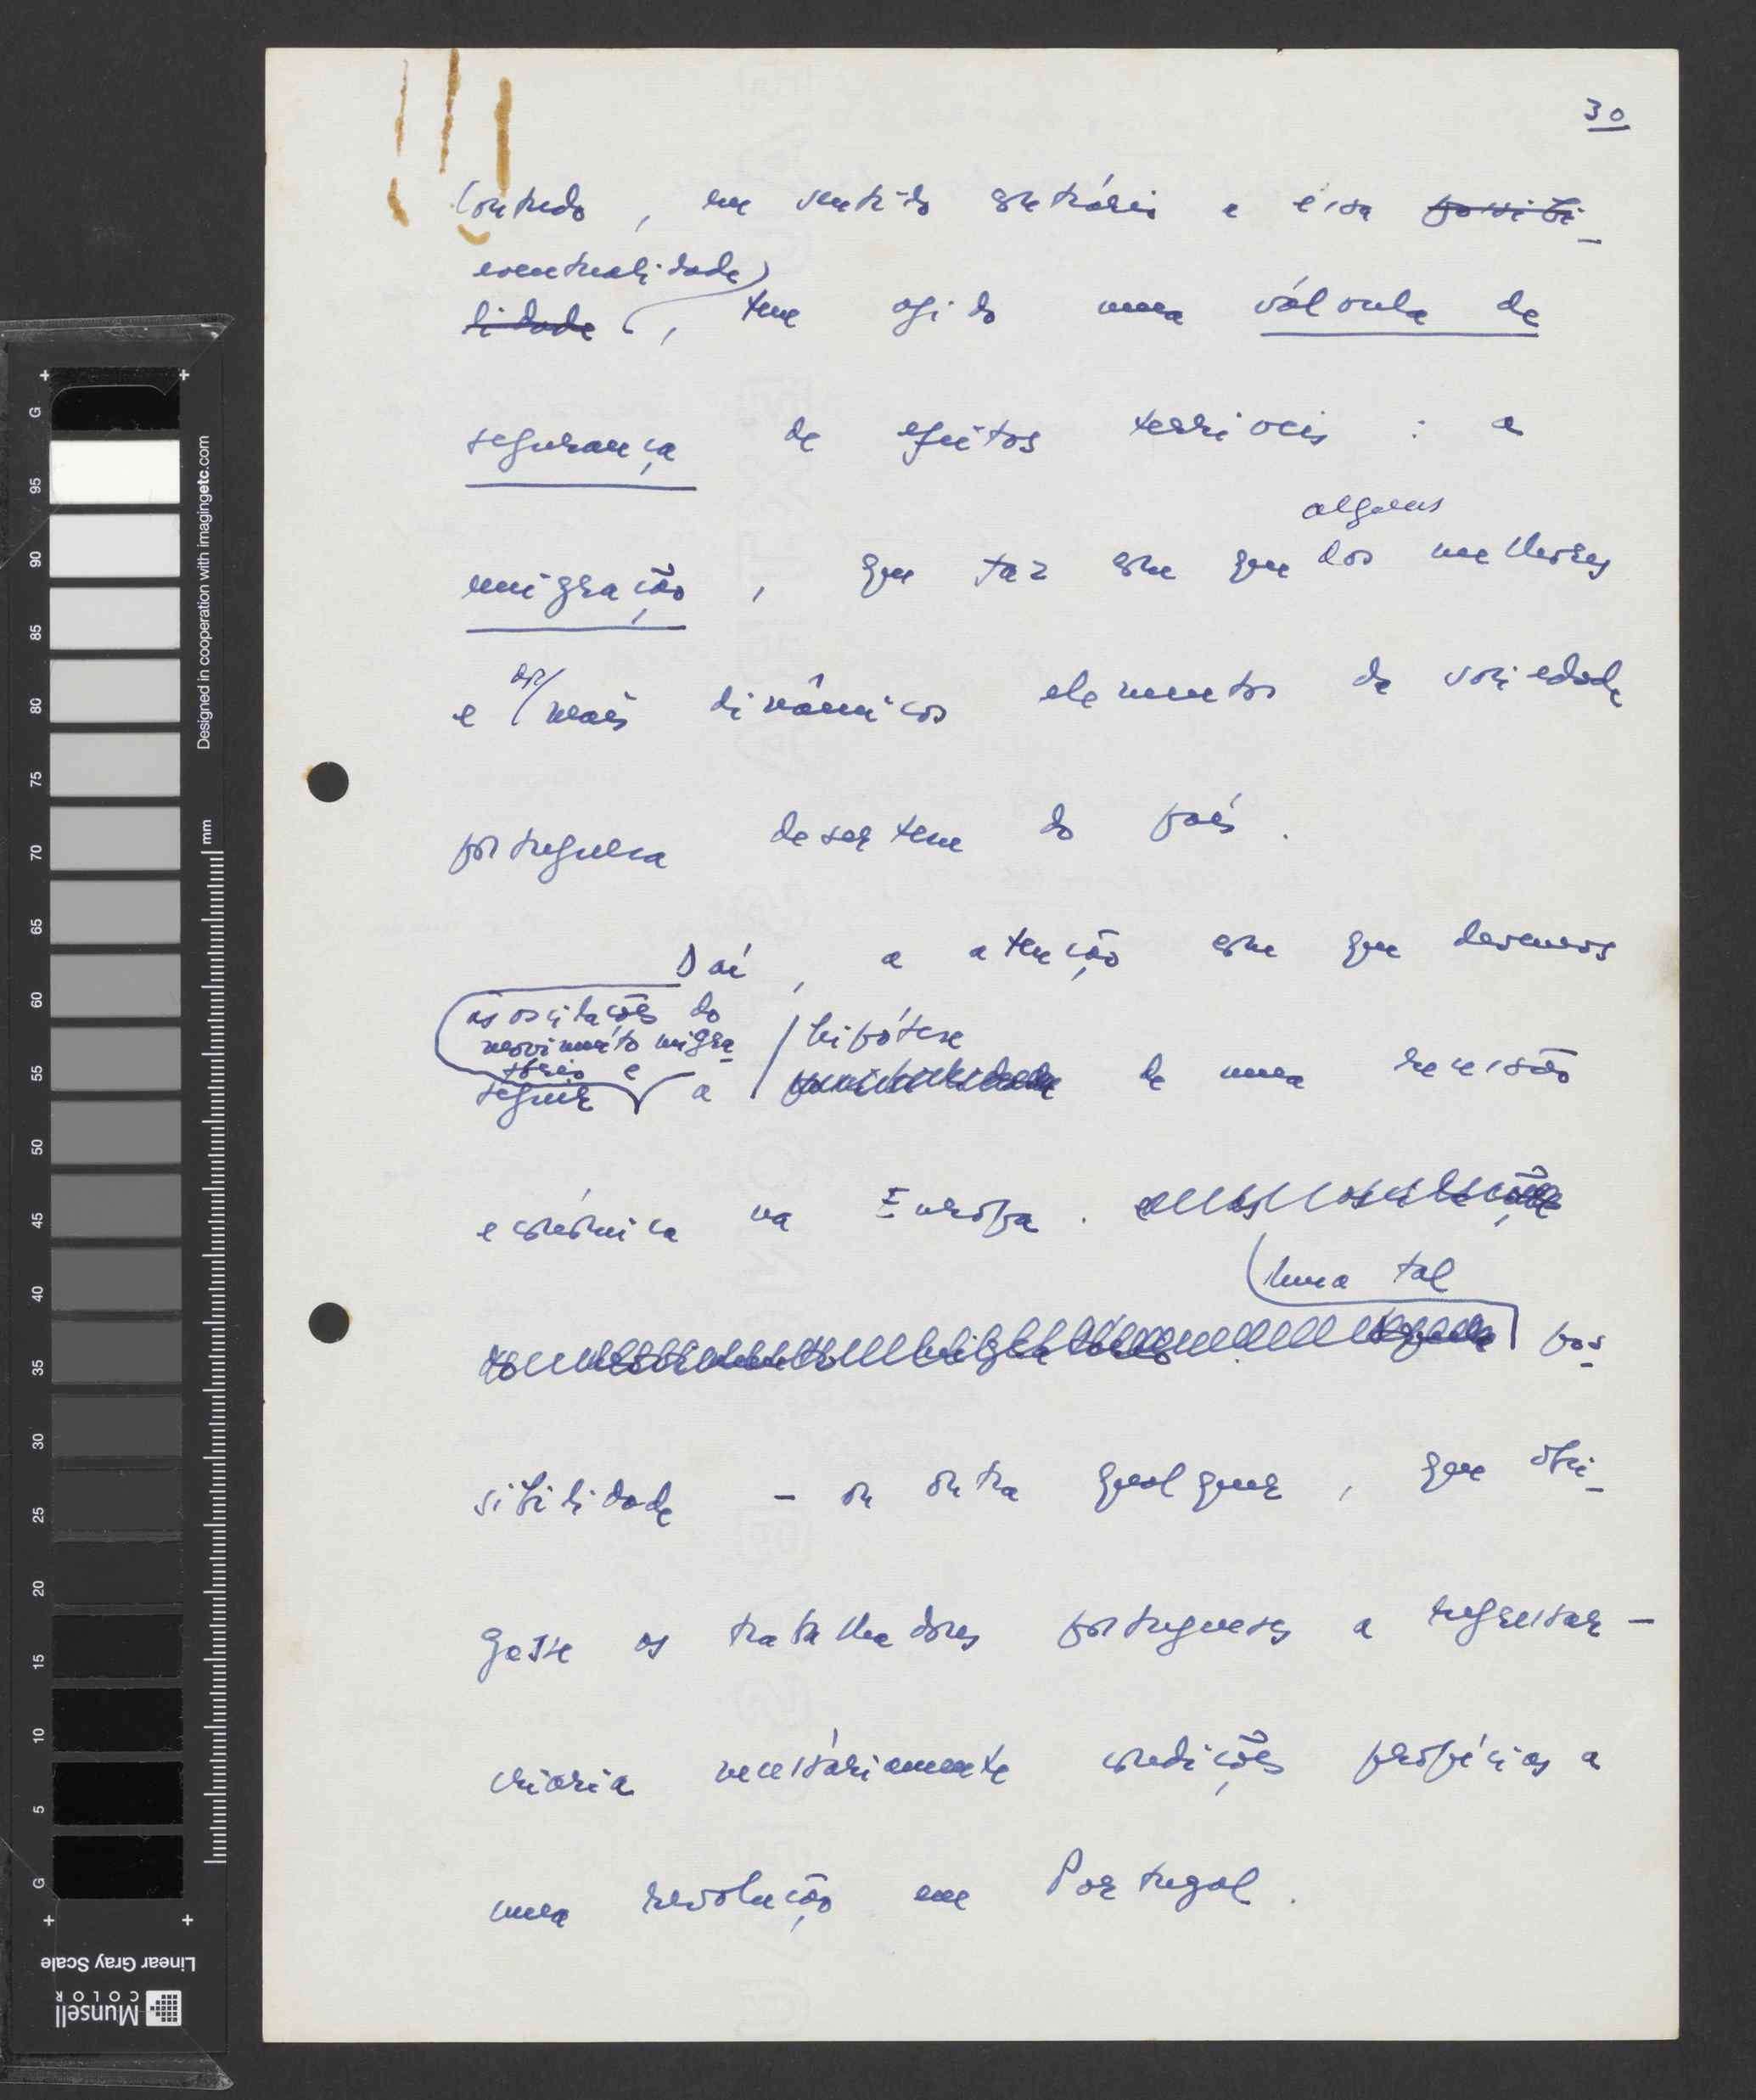 30
Contudo, em sentido contrário a essa possibi-
eventualidade
lidade, tem agido uma válvula de
segurança de efeitos terríveis : a
alguns
emigração, que faz com que dos melhores
os
e mais dinâmicos elementos da sociedade
portuguesa desertem do país.
Daí, a atenção com que devemos
as oscilações do
movimento migra-
tório e
hipótese
seguir a possibilidade de uma recessão
económica na Europa.
Uma tal
pos-
sibilidade - ou outra qualquer, que obri-
gasse os trabalhadores portugueses a regressar -
criaria necessàriamente condições propícias a
uma revolução em Portugal.
Designed in cooperation with imagingetc.com
mm
G
95
90
85
80
75
70
65
60
55
50
45
40
35
30
25
20
15
10
5
G
Linear Gray Scale
Munsell
COLOR